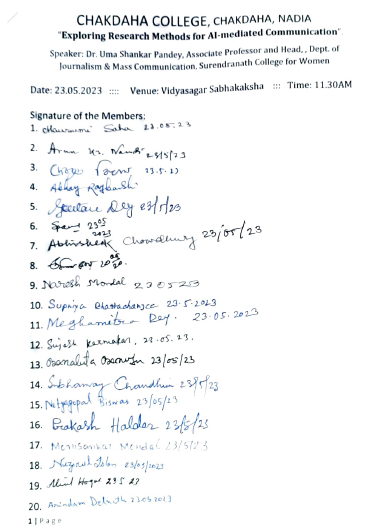 CHAKDAHA COLLEGE, CHAKDAHA, NADIA
"Exploring Research Methods for AI-mediated Communication"
Speaker: Dr. Uma Shankar Pandey, Associate Professor and Head, , Dept. of
Journalism & Mass Communication, Surendranath College for Women
Date: 23.05.2023 :::: Venue: Vidyasagar Sabhakaksha ::: Time: 11.30AM
Signature of the Members:
1. Saha 23.05.23
2. 23/5/23
3. 23.5.23
4. Abhay
5. Dey 23/5/23
6. 23.05 2023
7. Abhishek Chowdhury 23/05/23
8.
9. Naresh Mondal 230523
10. Supriya Bhattacharjee 23.5.2023
11. Meghamitra Dey. 23.05.2023
12. Sujash Karmakar, 23.05.23.
13. 23/05/23
14. Subhamay Chandhuri 23/5/23
15. Nityagopal Biswas 23/05/23
16. Prakash Halder 23/5/23
17. Monisankar Mondal 23/5/23
18. 23/05/2023
19. 23 5 23
20. Anindam Debnath 23.05.2023
1 | Page